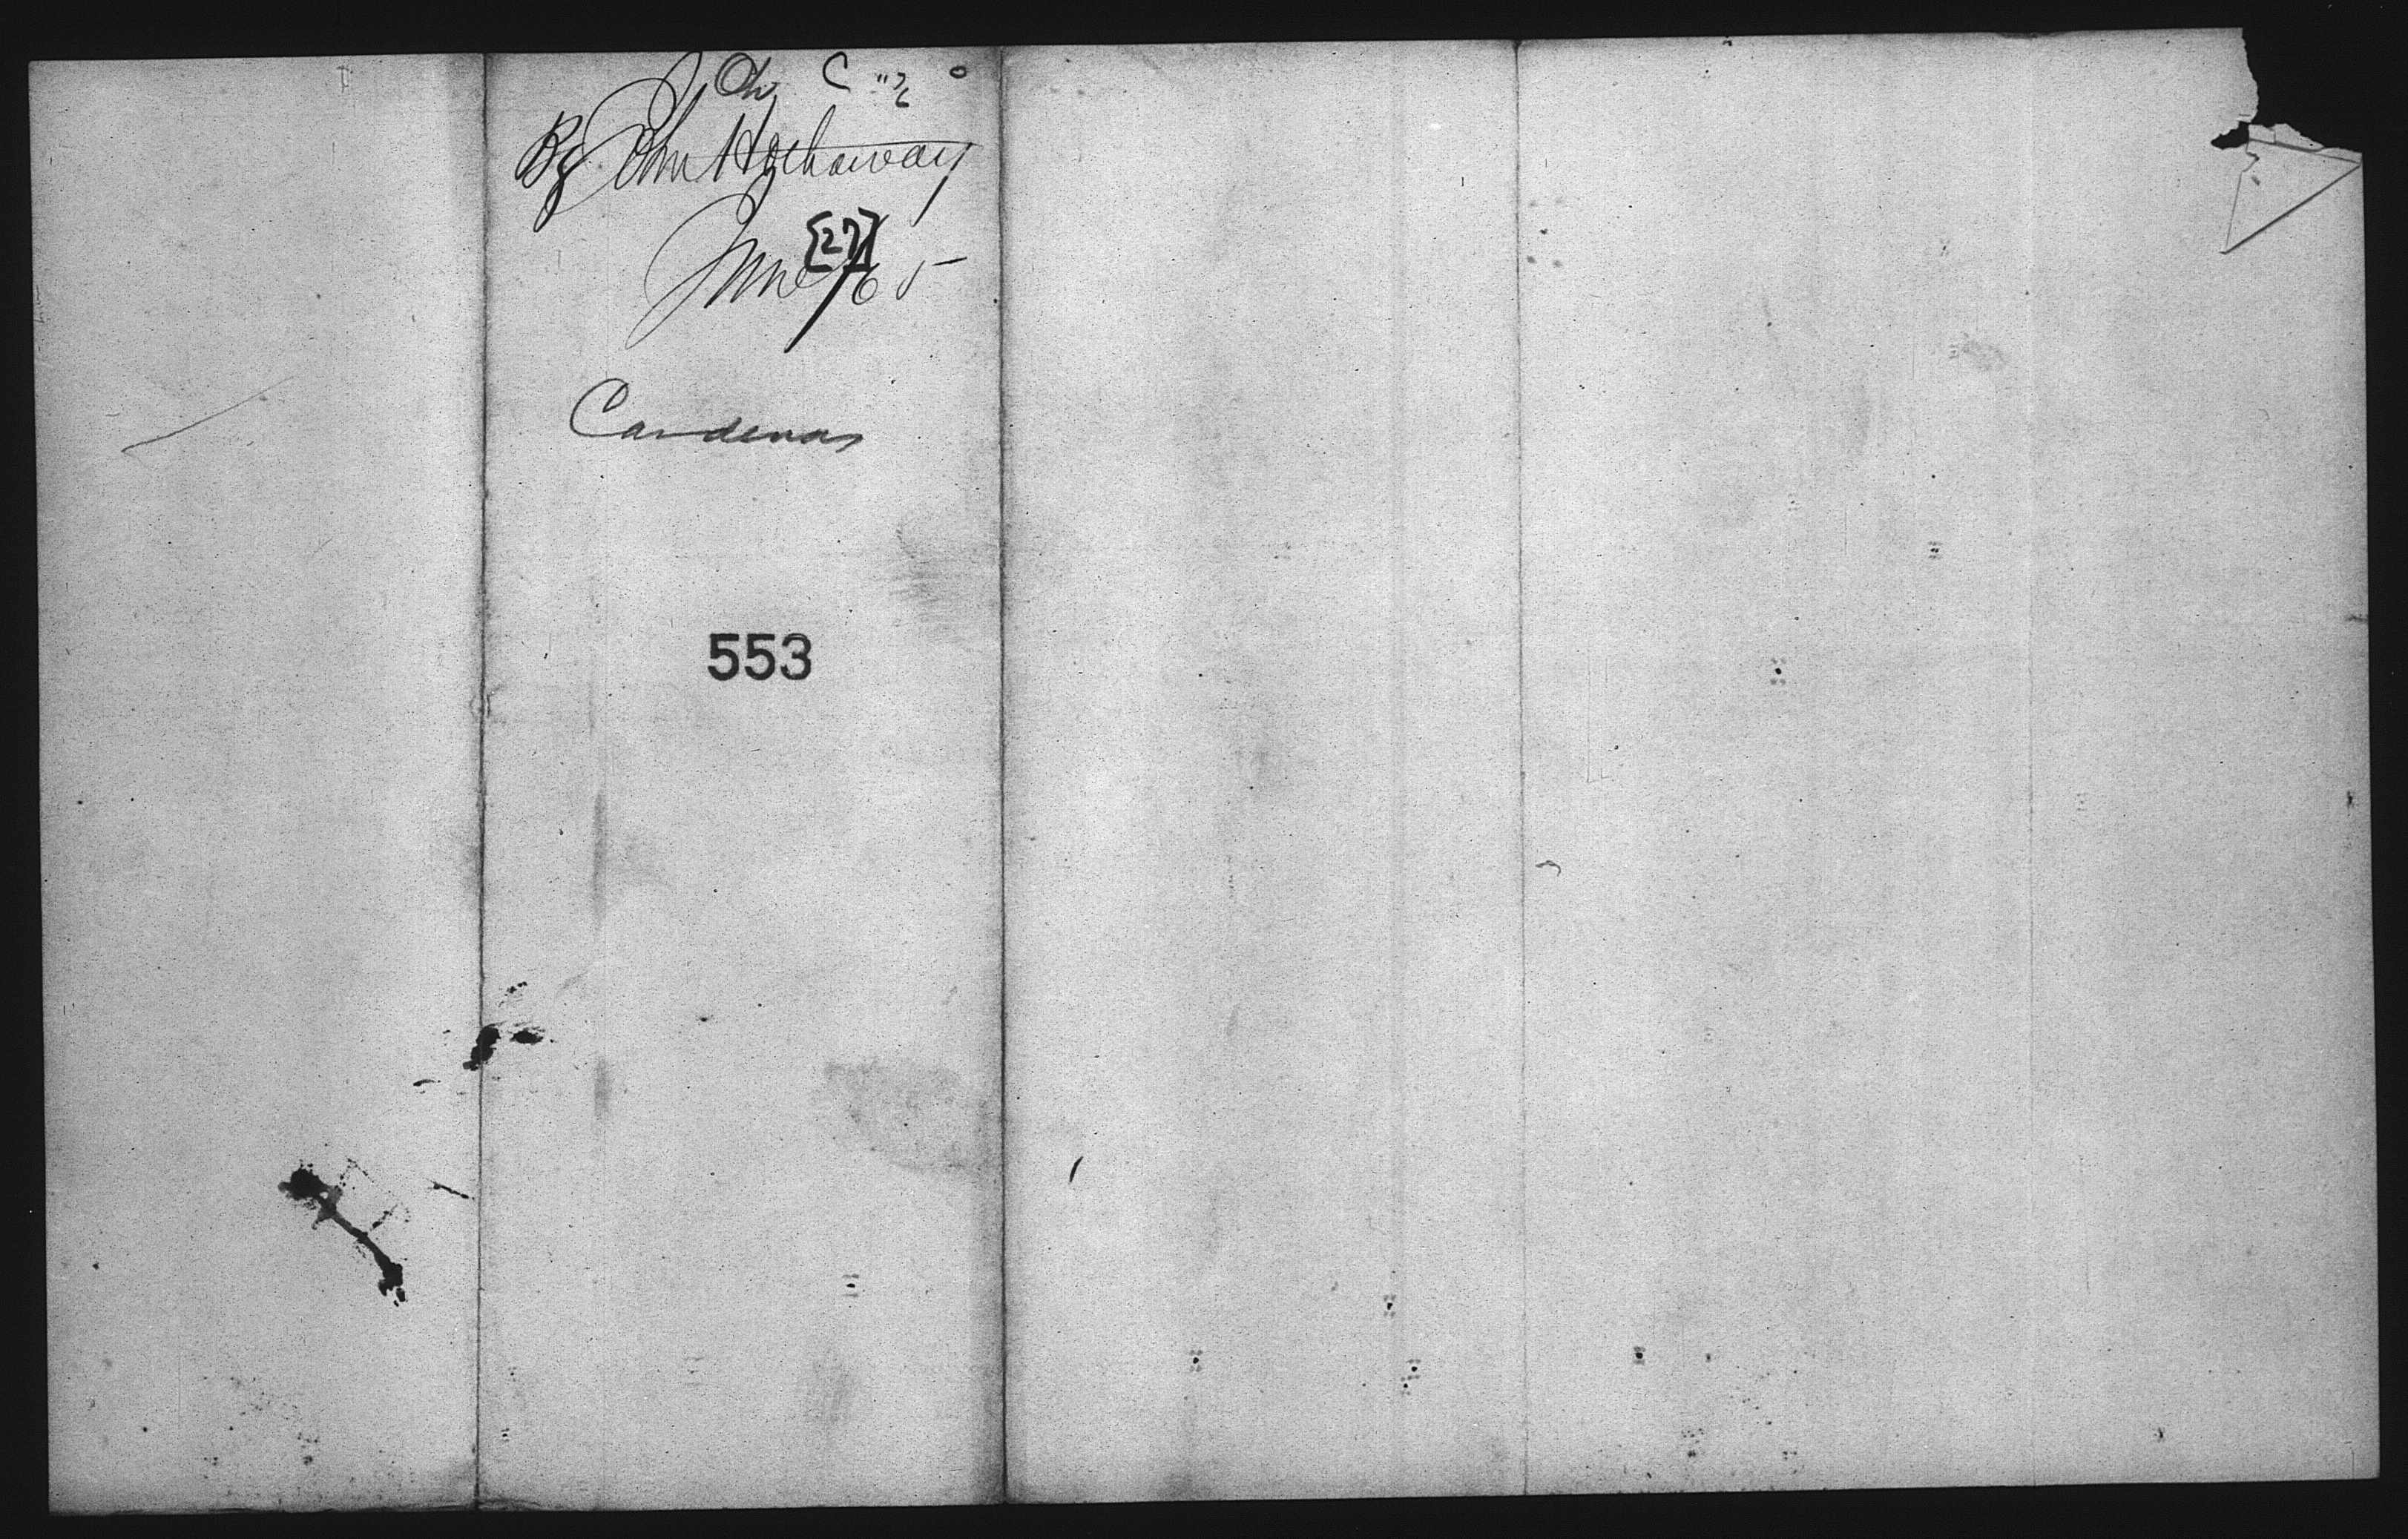 By John Hathaway
[27]
June/65
Cardenas
553